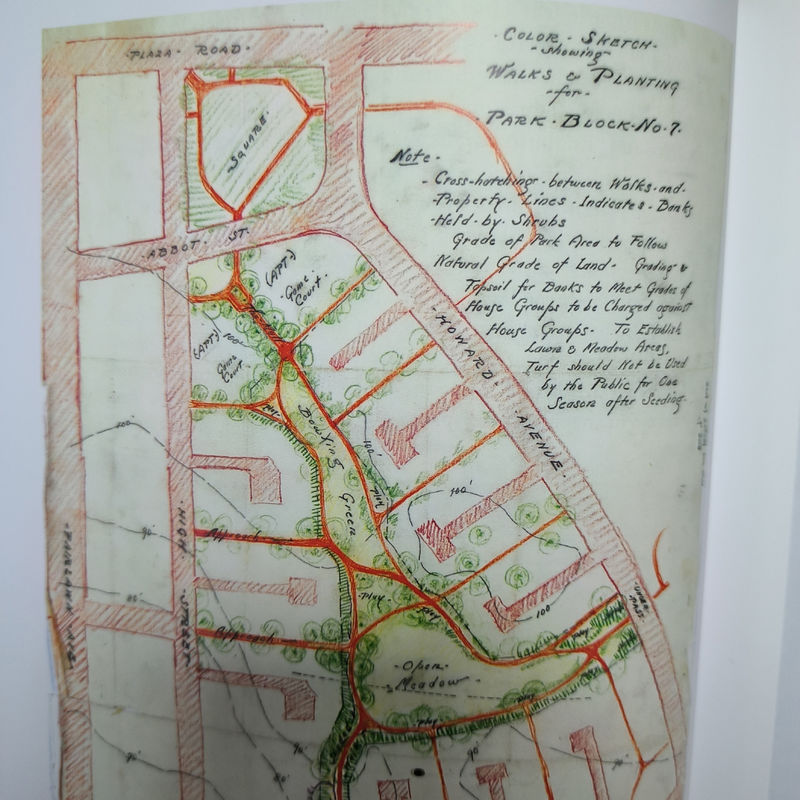 COLOR - SKETCH -
- showing -
WALKS & PLANTING
- for -
PARK - BLOCK - No. 7.
Note -
- Cross-hatchings - between Walks - and -
- Property - Lines - Indicates - Banks
- Held - by - Shrubs
Grade of Park Area to Follow
Natural Grade of Land - Grading &
Topsoil for Banks to Meet Grades of
House Groups to be Charged against
House Groups - To Establish
Lawns & Meadow Areas,
Turf should Not be Used
by the Public for One
Season after Seeding -
- PLAZA - ROAD -
- SQUARE -
ABBOT - ST.
(APT.)
- Game -
Court.
(APT.)
100'
Game
Court.
- HOWARD -
AVENUE -
Play
Bowling
Green
100'
Play
100'
100'
90'
80'
HIGH
STREET
FAIRLAWN AVE
Approach
Approach
- Play
Play
100
UNDER
PASS
Play
- Open -
Meadow -
Play
Play
90'
80'
90'
70'